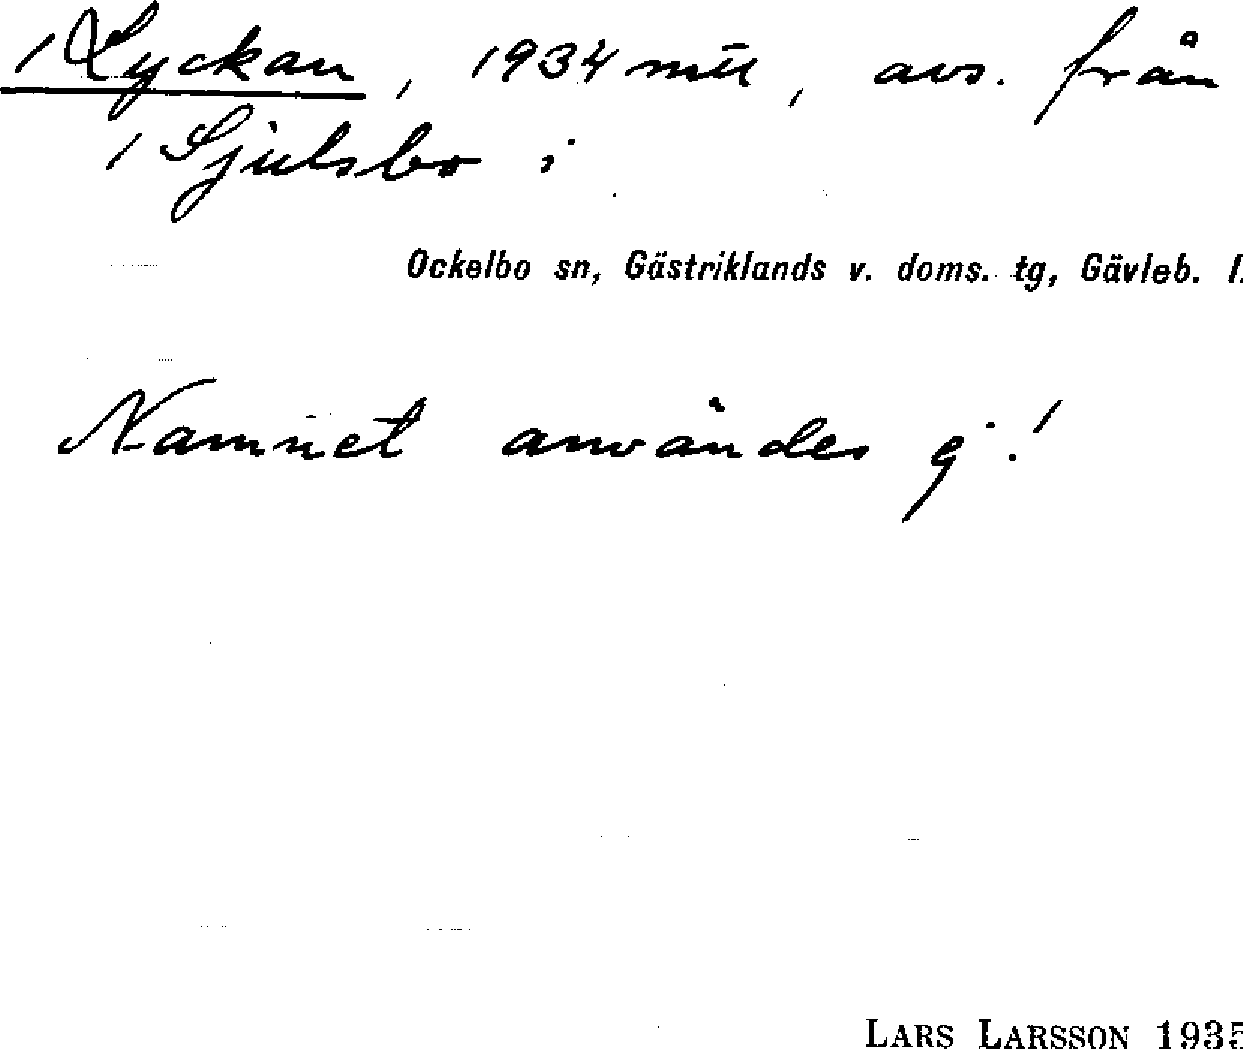 /Lyckan, 1934 mtl, avs. från
/Sjulsbo i
Ockelbo sn, Gästriklands v. doms. tg, Gävleb. l.
Namnet användes ej!
LARS LARSSON 1935